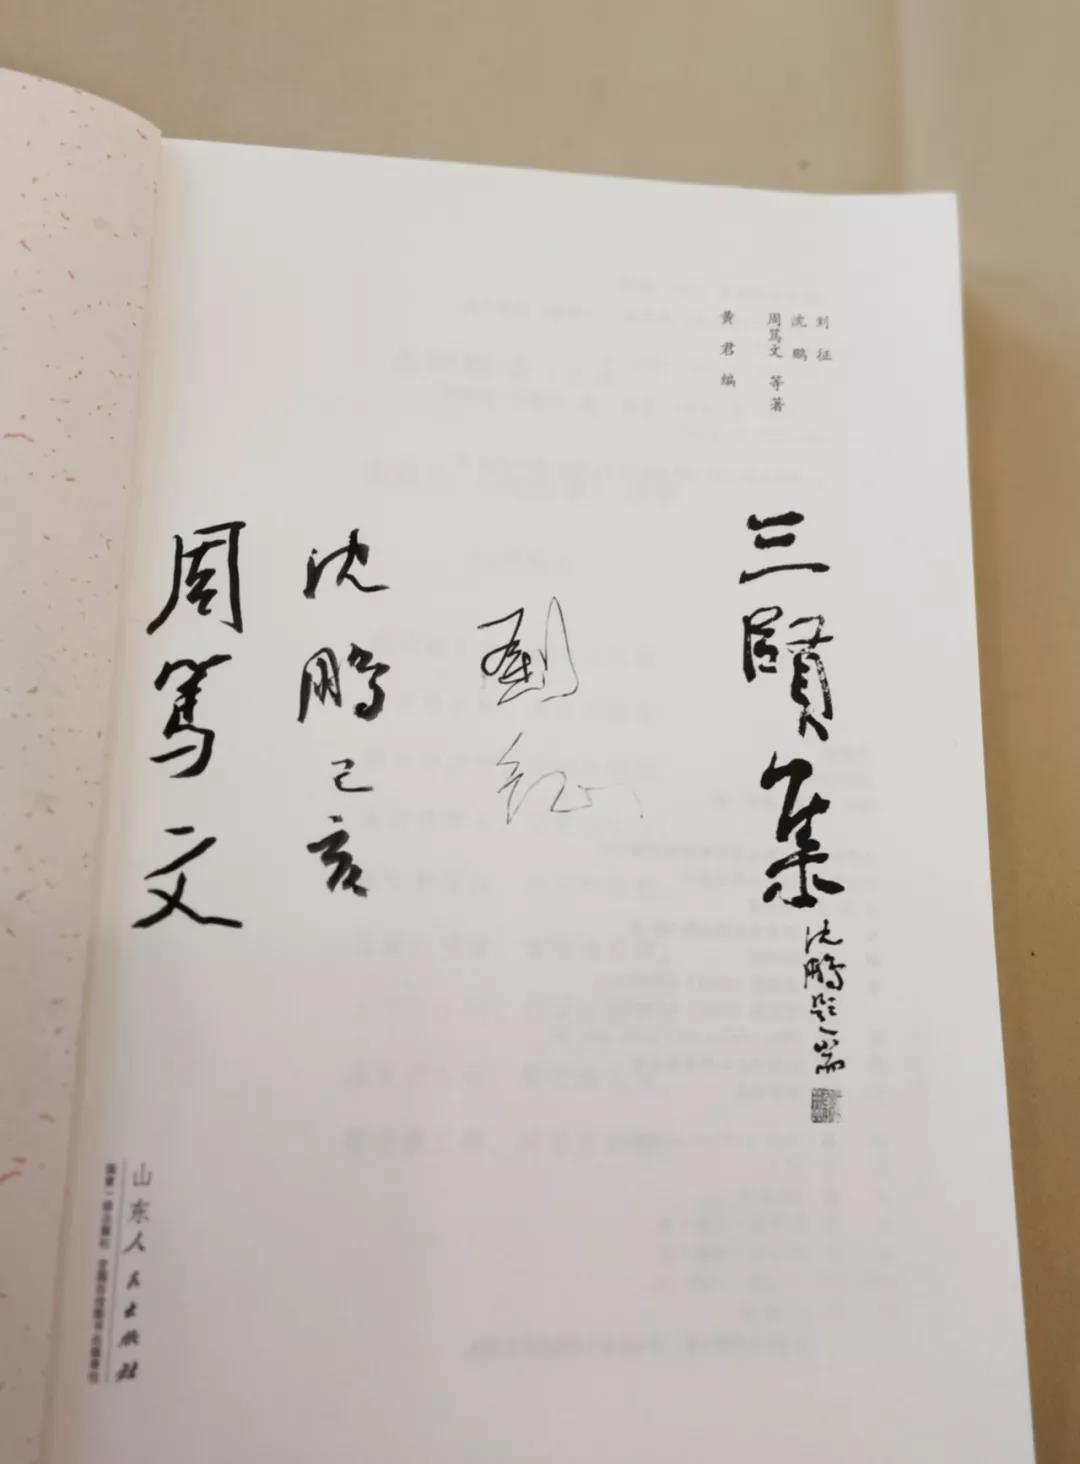 刘征
沈鹏
周笃文 等著
黄君编
三賢集
沈鹏题耑
劉征
沈鹏 己亥
周篤文
山东人民出版社
国家一级出版社 全国百佳图书出版单位